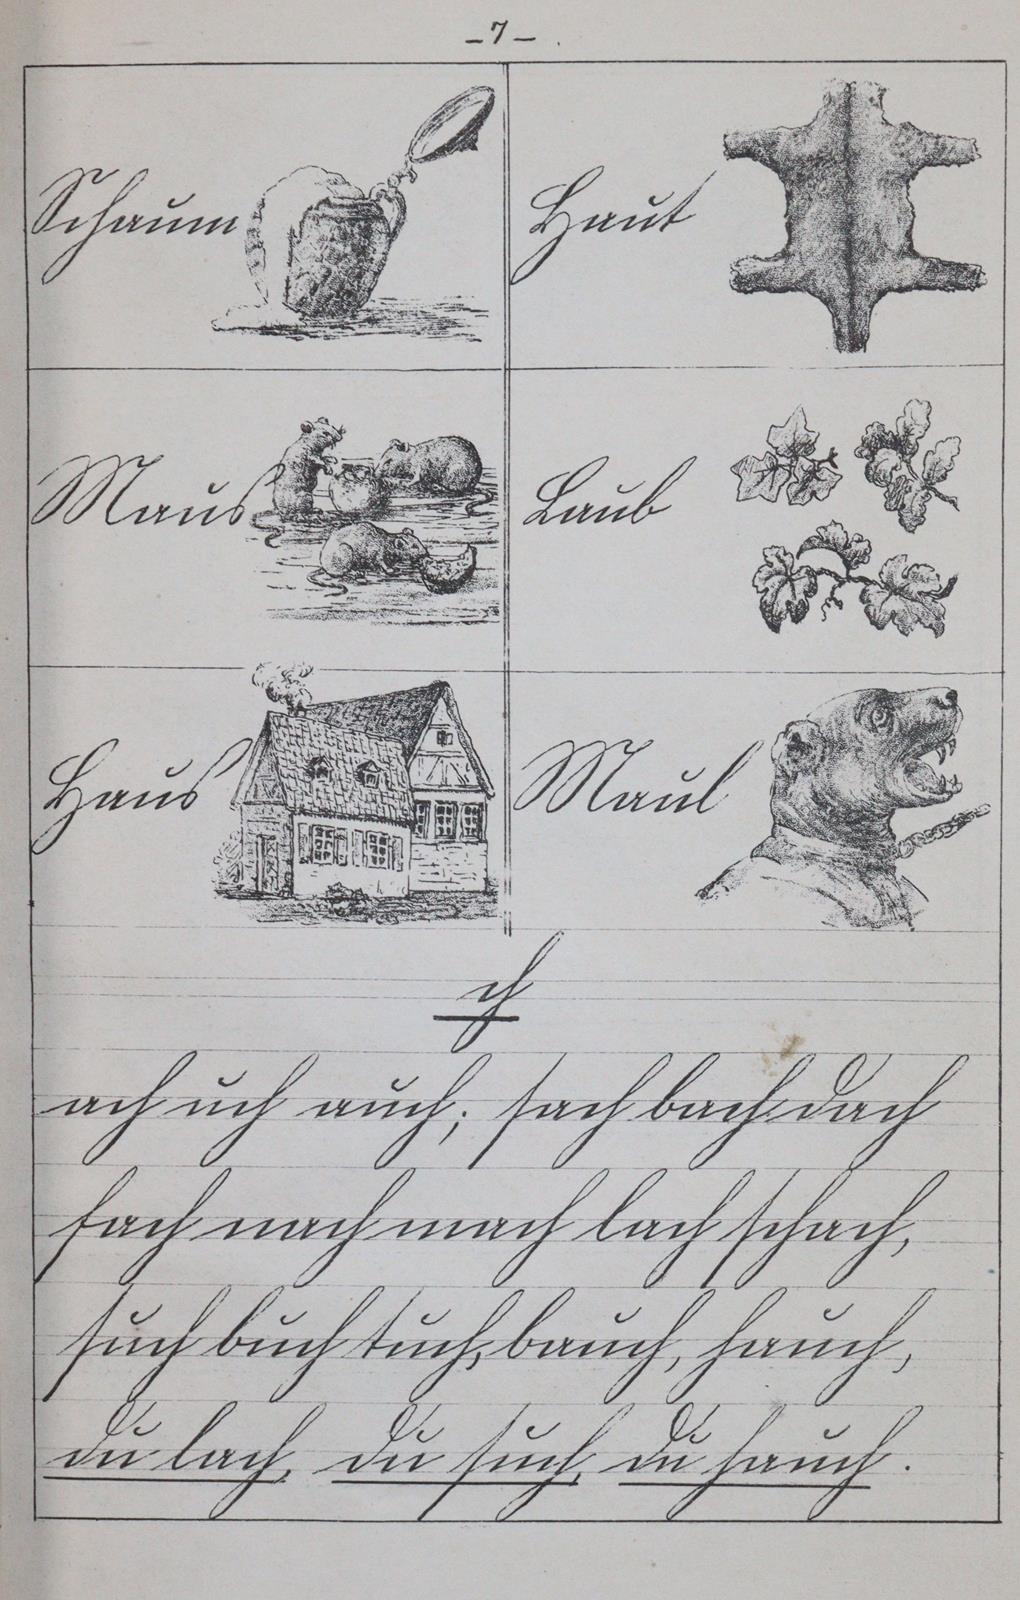 – 7 –
Schaum
Haut
Maus
Laub
Haus
Maul
ch
ach uch auch; sach bach dach
fach nach mach lach schach,
such buch tuch, bauch, hauch,
du lach, du such, du hauch.